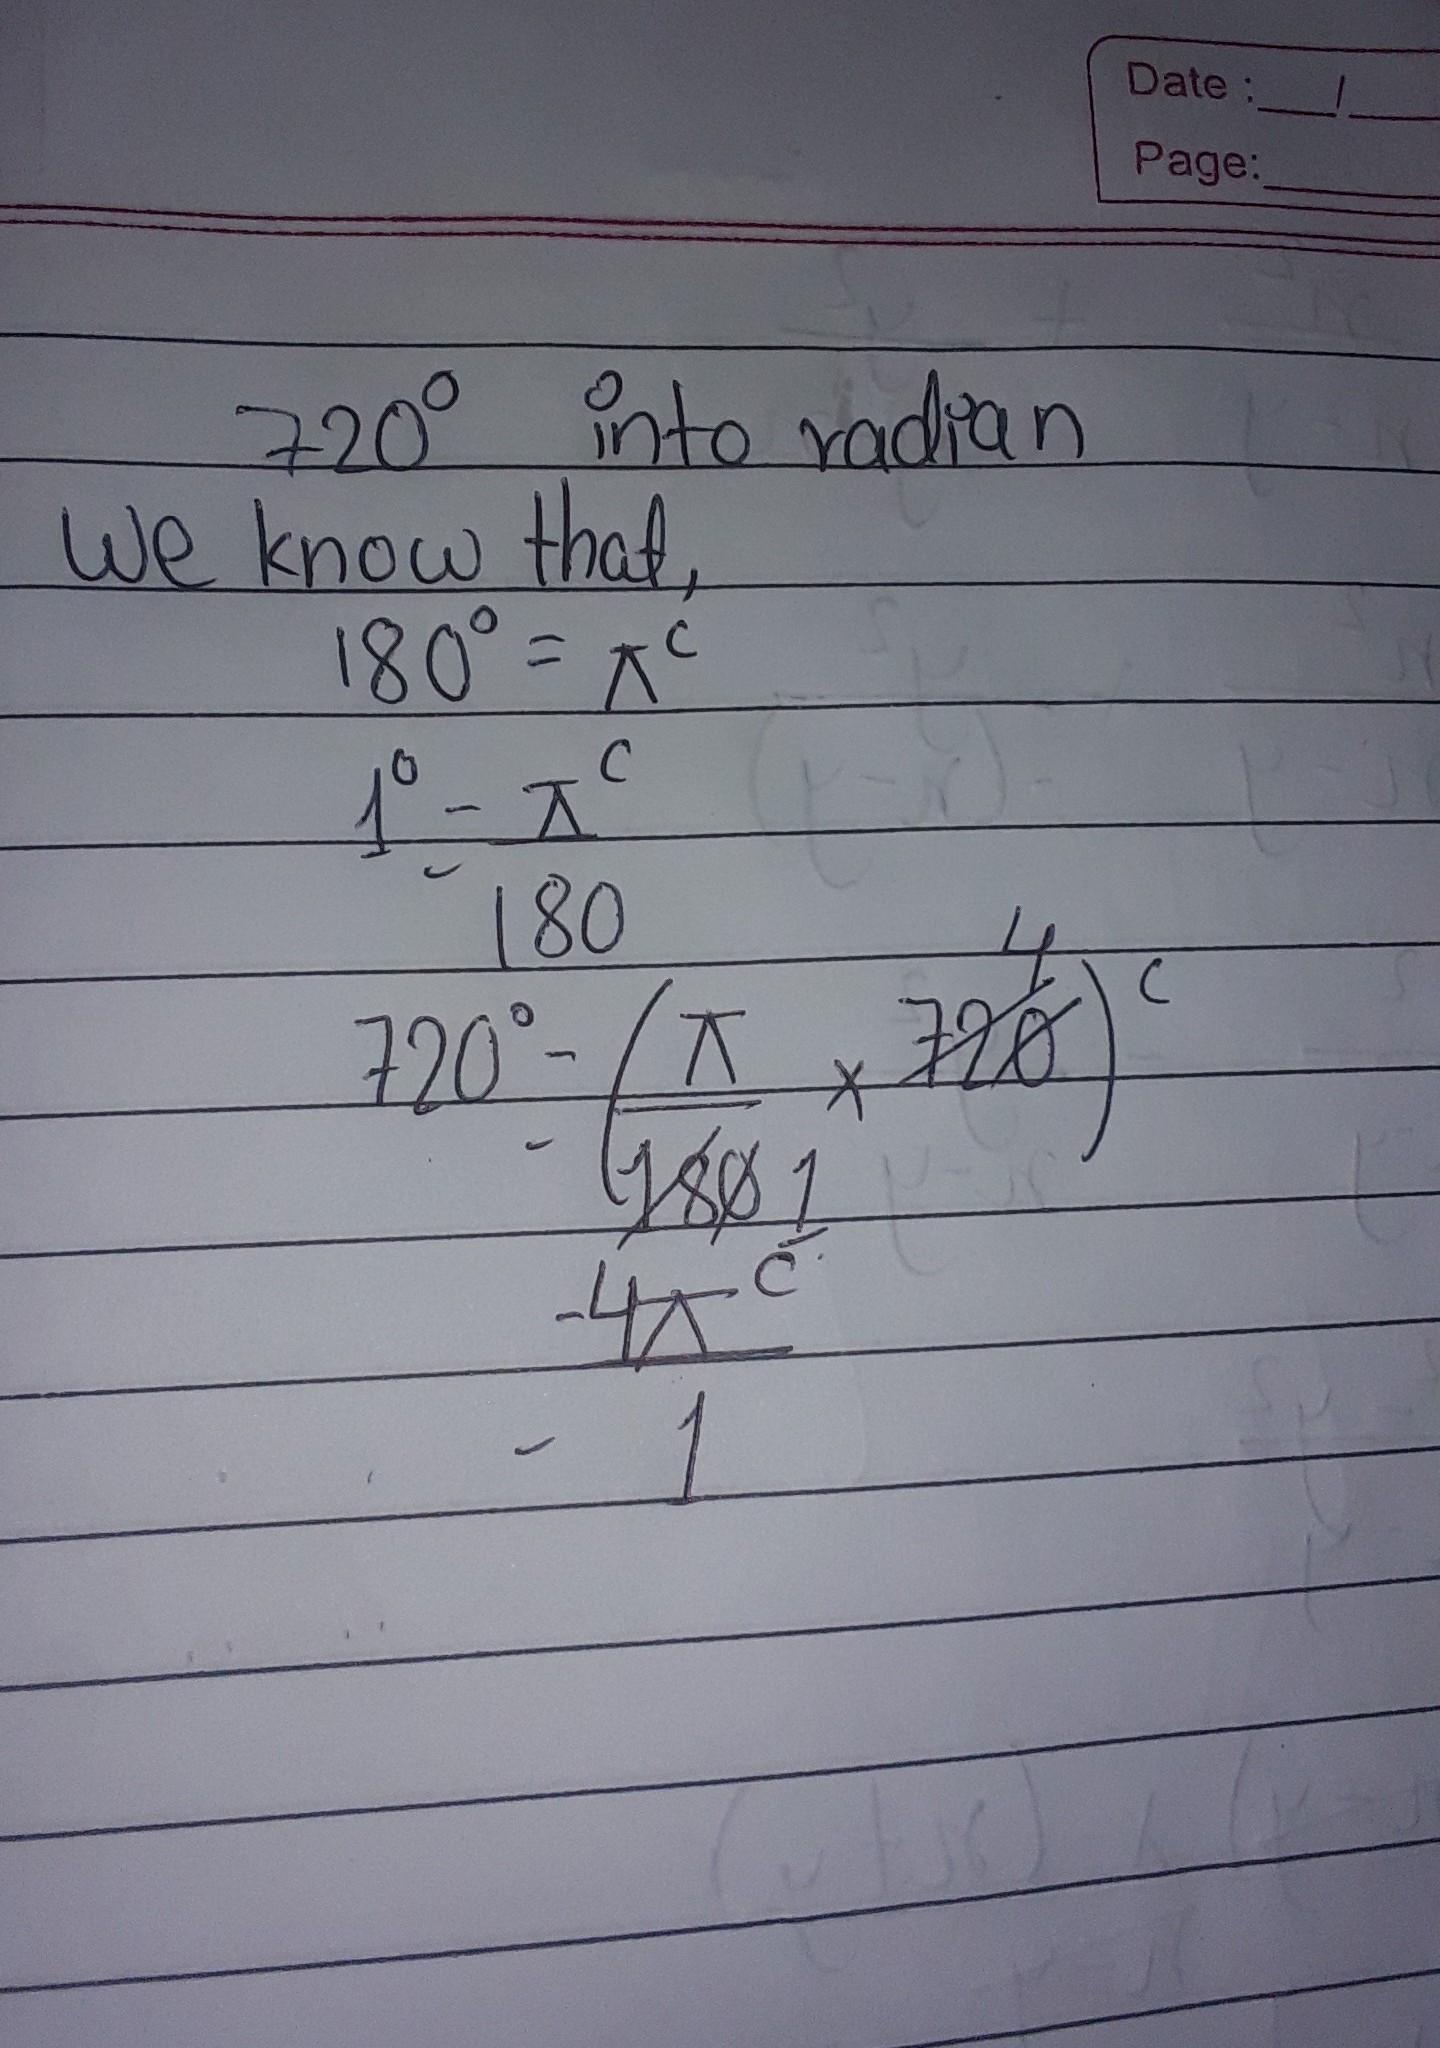 Date : __/__
Page: ____
720° into radian
We know that,
180° = π^c
1° = π^c
180
720° = (π/180 × 720)^c
4
1
= 4π^c
1